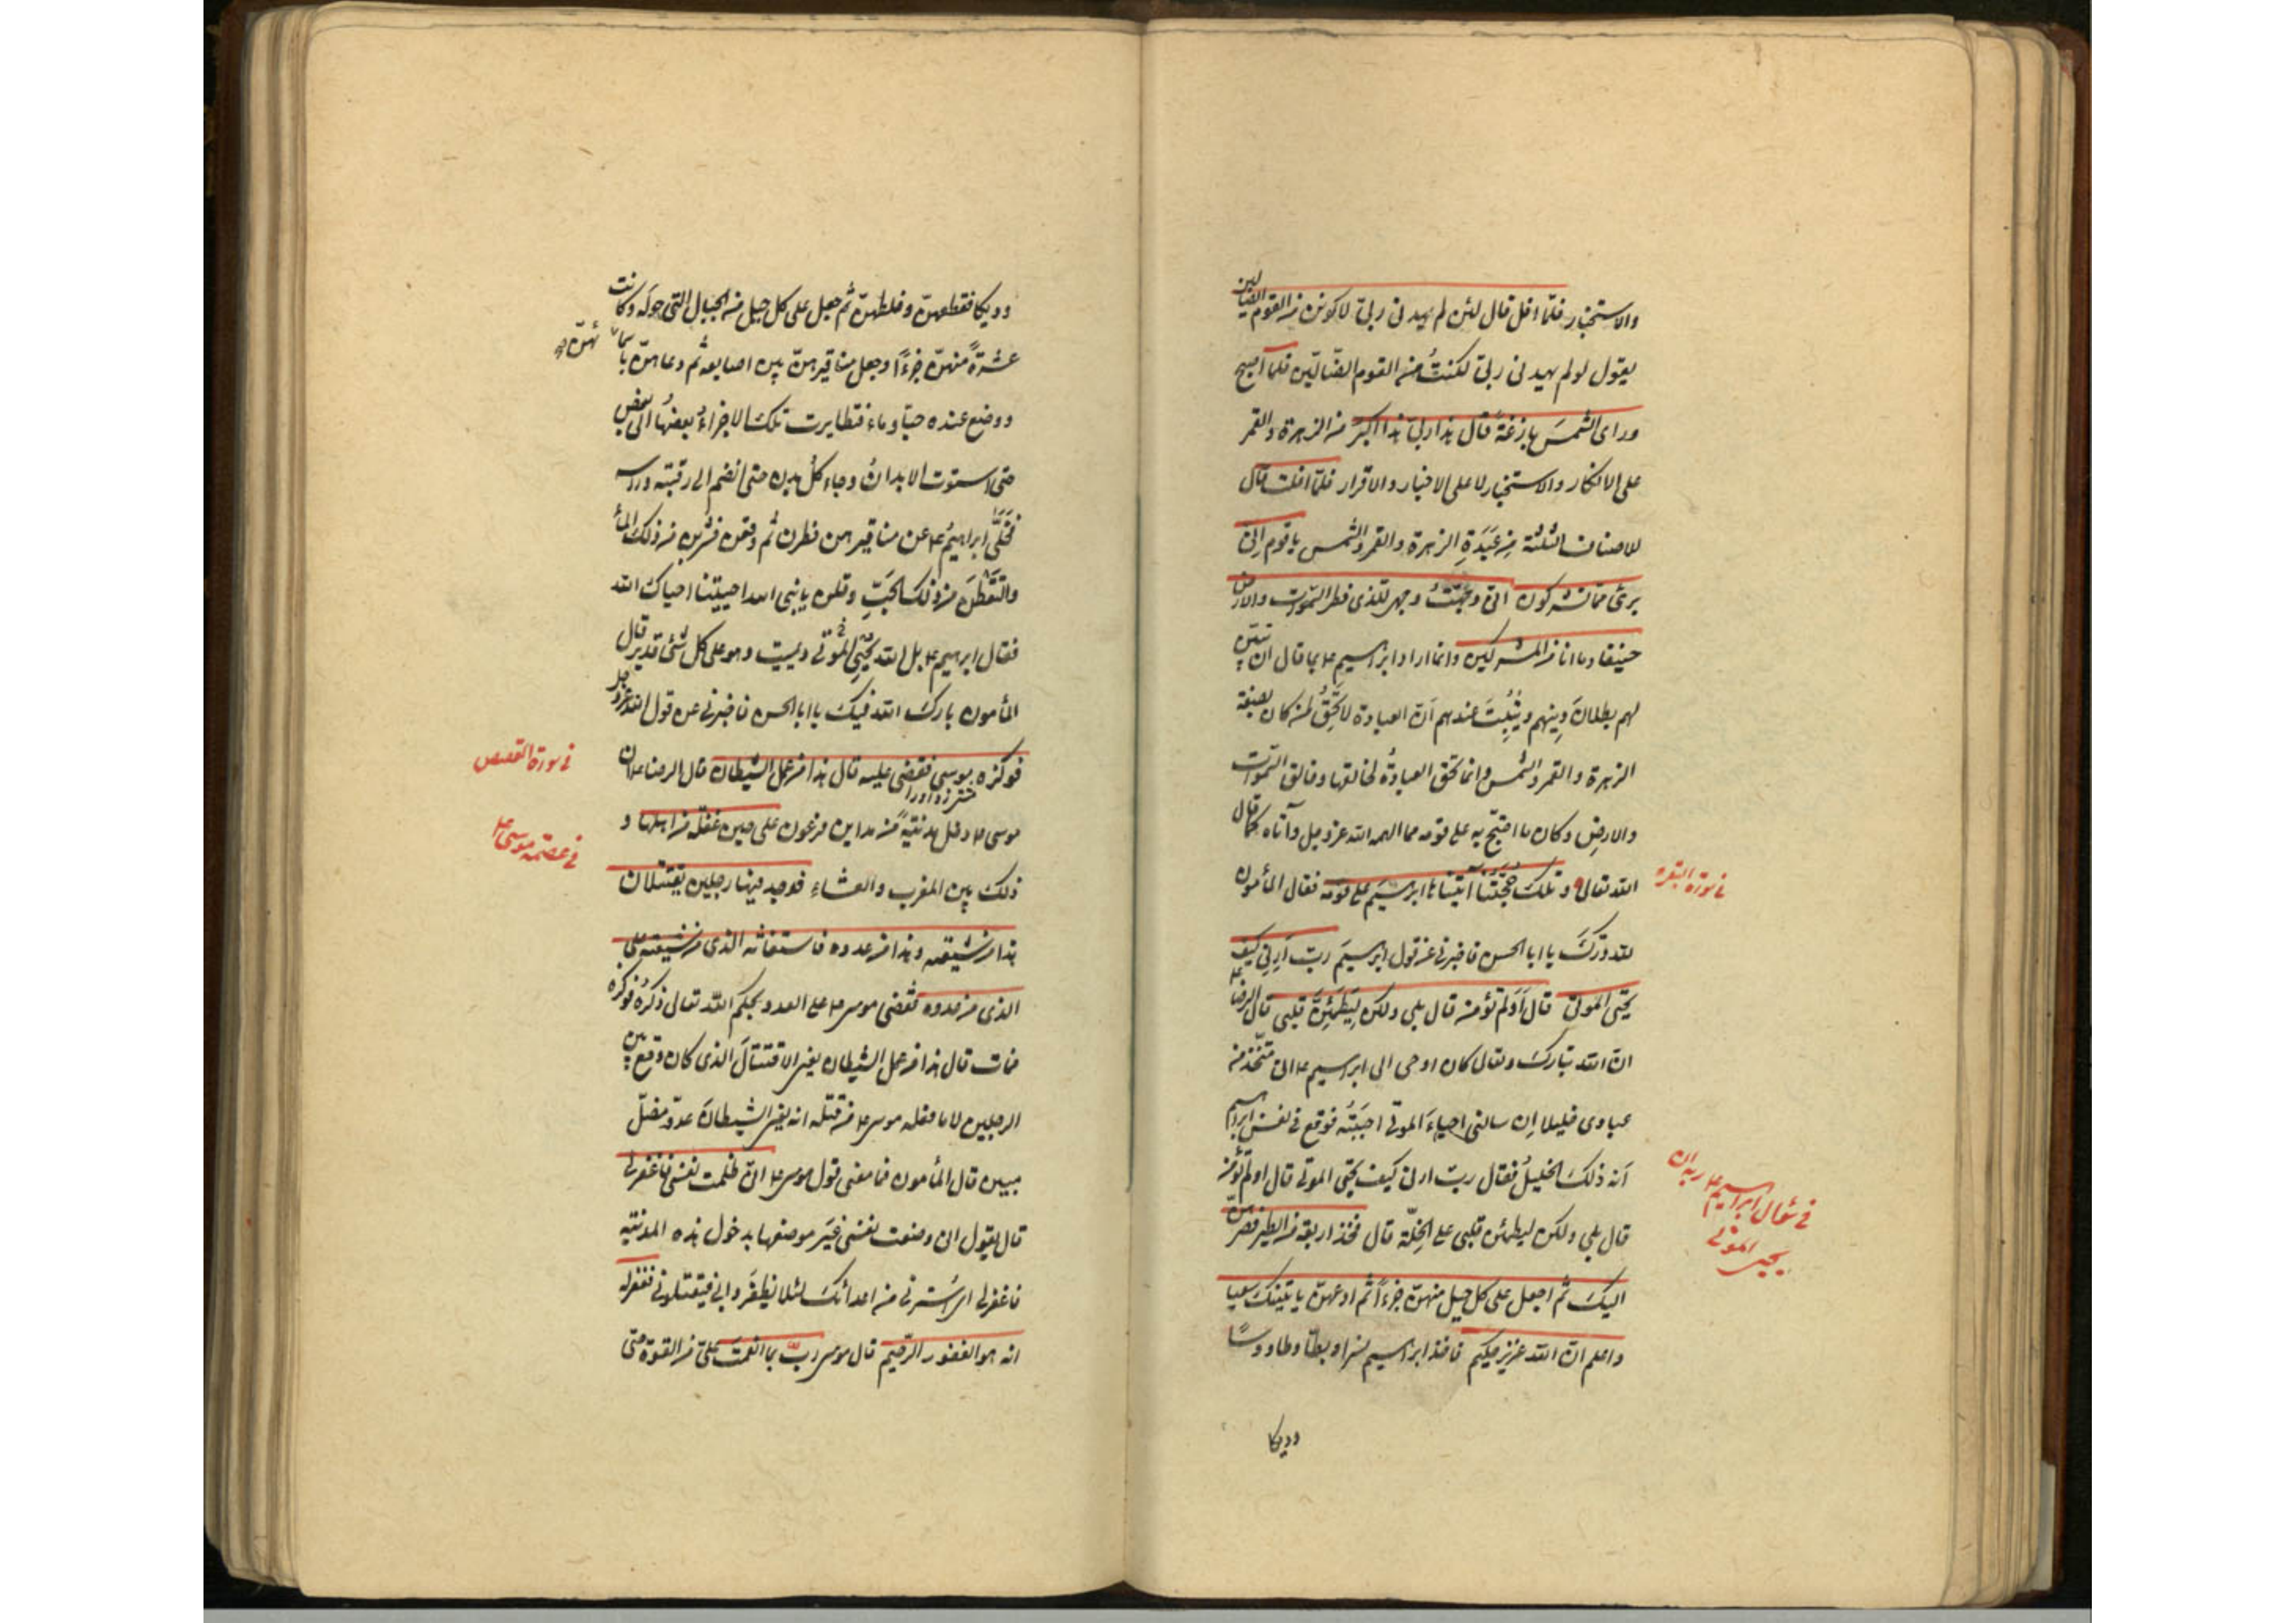 والاستخبار فلمّا افل قال لئن لم يهدنى ربى لاكونن من القوم الضالين
يقول لو لم يهدنى ربى لكنتُ من القوم الضّالّين فلما اصبح
وراى الشمسَ بازغةً قال هذا ربى هذا اكبر من الزهرة والقمر
على الانكار والاستخبار لا على الاخبار والاقرار فلمّا افلت قال
للاصناف الثلثة مِن عَبَدَةِ الزهرة والقمر والشمس يا قوم اِنّى
برئ ممّا تشركون انّى وجّهتُ وجهى للّذى فطر السّموات والارض
حنيفا وما انا من المشركين وانما اراد ابراهيم ع بما قال ان يبيّن
لهم بطلانَ دِينهم ويُثبِتَ عندهم اَنّ العبادة لا تَحِقُّ لمن كان بصفة
الزهرة والقمر والشمس وانما تحق العبادةُ لخالقها وخالق السّموات
والارضِ وكان ما احتجّ به على قومه مما الهمه الله عز وجل وآتاه كما قال
الله تعالى وتلكَ حُجَّتُنا آتيناها ابراهيمَ على قومه فقال المأمون
فى سورة البقره
لله درّكَ يا ابا الحسن فاخبرنى عن قول ابرهيمَ ربّ اَرِنِى كيف
تحيى الموتى قال اَوَلم تؤمن قال بلى ولكن لِيَطمَئِنَّ قلبى قال الرضا ع
انّ الله تبارك وتعالى كان اوحى الى ابراهيم ع انّى متّخذ من
عبادى خليلا اِن سالنى احياءَ الموتى اجَبتُه فوقع فى نفس ابراهيم
اَنّه ذلكَ الخليلُ فقال ربّ ارنى كيف تحيى الموتى قال اولم تؤمن
فى سؤال ابراهيم ع ربه ان
يحيى الموتى
قال بلى ولكن ليطمئن قلبى على الخِلّة قال فخذ اربعة من الطير فصرهنّ
اليكَ ثم اجعل على كل جبل منهنّ جزءاً ثم ادعهنّ ياتينكَ سعيا
واعلم انّ الله عزيز حكيم فاخذ ابراهيم نسرا وبطّا وطاووسًا
وديكا
وديكا فقطعهنّ وخلطهنّ ثم جعل على كل جبل من الجبال التى حوله وكانت
عشرةً منهنّ جزءًا وجعل مناقيرهنّ بين اصابعه ثم دعاهنّ باسمائهنّ
ووضع عنده حبّا وماء فتطايرت تلكَ الاجزاءُ بعضُها الى بعض
حتى استوت الابدانُ وجاء كلُّ بدن حتى انضم الى رقبته وراسه
فخَلّى ابراهيمُ ع عن مناقيرهن فطرن ثم وقعن فشربن من ذلك الماء
والتَقَطنَ من ذلك الحَبِّ وقلن يا نبى الله احييتنا احياك الله
فقال ابرهيم ع بل الله يُحيِى الموتى ويميت وهو على كل شئ قدير قال
المأمون بارك الله فيكَ يا ابا الحسن فاخبرنى عن قول الله عز وجل
فوكزه موسى فقضى عليه قال هذا من عمل الشيطان قال الرضا ع ان
فى سورة القصص
موسى ع دخل مدينةً من مداين فرعون على حين غفلة من اهلها و
فى عصمة موسى ع
ذلك بين المغرب والعشاء فوجد فيها رجلين يقتتلان
هذا من شيعته وهذا من عدوه فاستغاثه الذى من شيعته على
الذى من عدوه فقضى موسى ع على العدو بحكم الله تعالى ذكرُه فوكزه
فمات قال هذا من عمل الشيطان يعنى الاقتتالَ الذى كان وقع بين
الرجلين لا ما فعله موسى ع من قتله انه يعنى الشيطانَ عدوّ مضلّ
مبين قال المأمون فما معنى قول موسى ع انّى ظلمت نفسى فاغفرلى
قال يقول انى وضعت نفسى غيرَ موضعها بدخول هذه المدينة
فاغفرلى اى استُرنى من اعدائكَ لئلا يظفَروا بى فيقتلونى فغفرله
انه هو الغفور الرّحيم قال موسى ربّ بما انعمتَ علىّ من القوة حتى